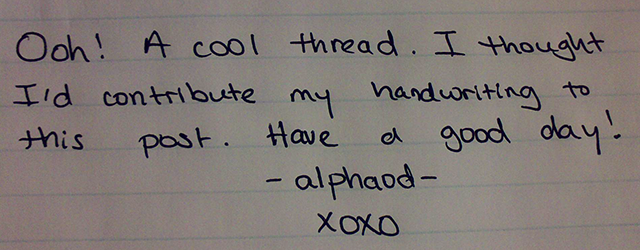 Ooh! A cool thread. I thought
I'd contribute my handwriting to
this post. Have a good day!
- alphaod -
XOXO